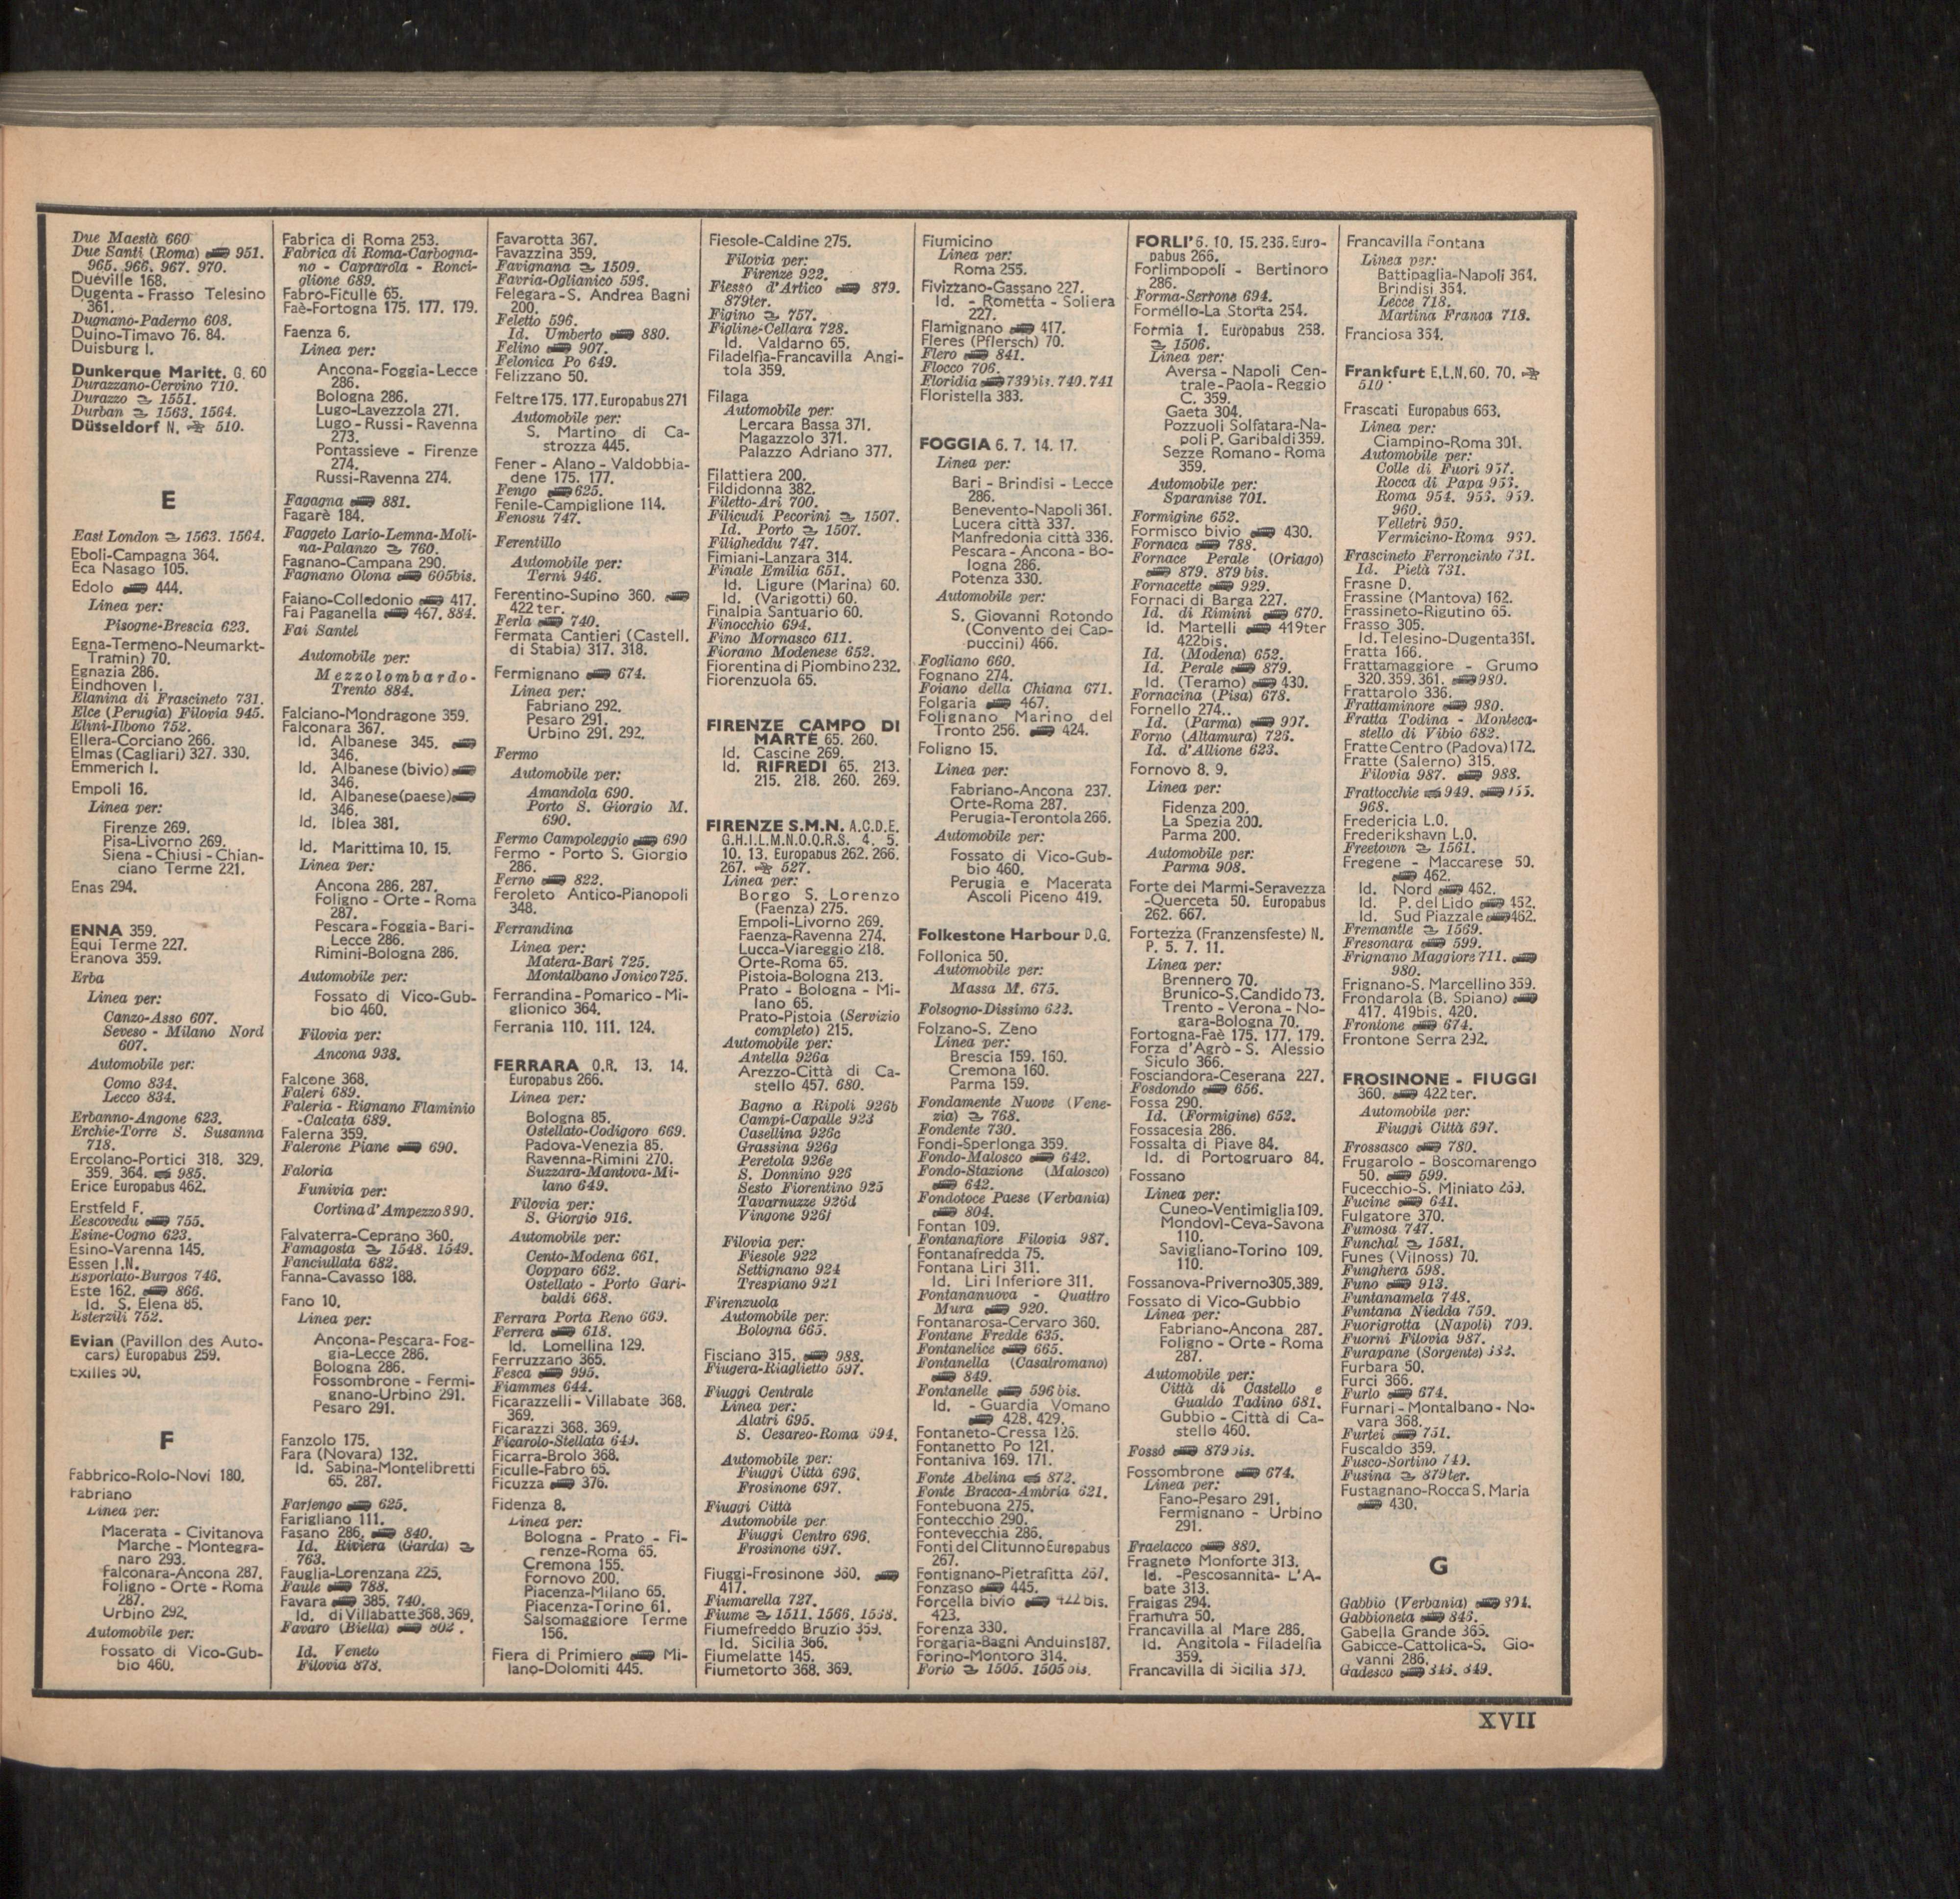 Due Maestà 660
Due Santi (Roma) 951.
965. 966. 967. 970.
Dueville 168.
Dugenta - Frasso Telesino
361.
Dugnano-Paderno 608.
Duino-Timavo 76. 84.
Duisburg I.
Dunkerque Maritt. G. 60
Durazzano-Cervino 710.
Durazzo 1551.
Durban 1563. 1564.
Düsseldorf N. 510.
E
East London 1563. 1564.
Eboli-Campagna 364.
Eca Nasago 105.
Edolo 444.
Linea per:
Pisogne-Brescia 623.
Egna-Termeno-Neumarkt-
Tramin) 70.
Egnazia 286.
Eindhoven I.
Elanina di Frascineto 731.
Elce (Perugia) Filovia 945.
Elini-Ilbono 752.
Ellera-Corciano 266.
Elmas (Cagliari) 327. 330.
Emmerich I.
Empoli 16.
Linea per:
Firenze 269.
Pisa-Livorno 269.
Siena - Chiusi - Chian-
ciano Terme 221.
Enas 294.
ENNA 359.
Equi Terme 227.
Eranova 359.
Erba
Linea per:
Canzo-Asso 607.
Seveso - Milano Nord
607.
Automobile per:
Como 834.
Lecco 834.
Erbanno-Angone 623.
Erchie-Torre S. Susanna
718.
Ercolano-Portici 318. 329.
359. 364. 985.
Erice Europabus 462.
Erstfeld F.
Eescovedu 755.
Esine-Cogno 623.
Esino-Varenna 145.
Essen I.N.
Esporlato-Burgos 746.
Este 162. 866.
Id. S. Elena 85.
Esterzili 752.
Evian (Pavillon des Auto-
cars) Europabus 259.
Exilles 50.
F
Fabbrico-Rolo-Novi 180.
Fabriano
Linea per:
Macerata - Civitanova
Marche - Montegra-
naro 293.
Falconara-Ancona 287.
Foligno - Orte - Roma
287.
Urbino 292.
Automobile per:
Fossato di Vico-Gub-
bio 460.
Fabrica di Roma 253.
Fabrica di Roma-Carbogna-
no - Caprarola - Ronci-
glione 689.
Fabro-Ficulle 65.
Faè-Fortogna 175. 177. 179.
Faenza 6.
Linea per:
Ancona-Foggia-Lecce
286.
Bologna 286.
Lugo-Lavezzola 271.
Lugo - Russi - Ravenna
273.
Pontassieve - Firenze
274.
Russi-Ravenna 274.
Fagagna 881.
Fagarè 184.
Faggeto Lario-Lemna-Moli-
na-Palanzo 760.
Fagnano-Campana 290.
Fagnano Olona 605bis.
Faiano-Colledonio 417.
Fai Paganella 467. 884.
Fai Santel
Automobile per:
Mezzolombardo-
Trento 884.
Falciano-Mondragone 359.
Falconara 367.
Id. Albanese 345.
346.
Id. Albanese (bivio)
346.
Id. Albanese(paese)
346.
Id. Iblea 381.
Id. Marittima 10. 15.
Linea per:
Ancona 286. 287.
Foligno - Orte - Roma
287.
Pescara - Foggia - Bari-
Lecce 286.
Rimini-Bologna 286.
Automobile per:
Fossato di Vico-Gub-
bio 460.
Filovia per:
Ancona 938.
Falcone 368.
Faleri 689.
Faleria - Rignano Flaminio
-Calcata 689.
Falerna 359.
Falerone Piane 690.
Faloria
Funivia per:
Cortina d'Ampezzo 890.
Falvaterra-Ceprano 360.
Famagosta 1548. 1549.
Fanciullata 682.
Fanna-Cavasso 188.
Fano 10.
Linea per:
Ancona-Pescara- Fog-
gia-Lecce 286.
Bologna 286.
Fossombrone - Fermi-
gnano-Urbino 291.
Pesaro 291.
Fanzolo 175.
Fara (Novara) 132.
Id. Sabina-Montelibretti
65. 287.
Farfengo 625.
Farigliano 111.
Fasano 286. 840.
Id. Riviera (Garda)
763.
Fauglia-Lorenzana 225.
Faule 788.
Favara 385. 740.
Id. di Villabatte 368. 369.
Favaro (Biella) 802.
Id. Veneto
Filovia 878.
Favarotta 367.
Favazzina 359.
Favignana 1509.
Favria-Oglianico 596.
Felegara-S. Andrea Bagni
200.
Feletto 596.
Id. Umberto 880.
Felino 907.
Felonica Po 649.
Felizzano 50.
Feltre 175. 177. Europabus 271
Automobile per:
S. Martino di Ca-
strozza 445.
Fener - Alano - Valdobbia-
dene 175. 177.
Fengo 625.
Fenile-Campiglione 114.
Fenosu 747.
Ferentillo
Automobile per:
Terni 946.
Ferentino-Supino 360.
422 ter.
Ferla 740.
Fermata Cantieri (Castell.
di Stabia) 317. 318.
Fermignano 674.
Linea per:
Fabriano 292.
Pesaro 291.
Urbino 291. 292.
Fermo
Automobile per:
Amandola 690.
Porto S. Giorgio M.
690.
Fermo Campoleggio 690
Fermo - Porto S. Giorgio
286.
Ferno 822.
Feroleto Antico-Pianopoli
348.
Ferrandina
Linea per:
Matera-Bari 725.
Montalbano Jonico 725.
Ferrandina - Pomarico - Mi-
glionico 364.
Ferrania 110. 111. 124.
FERRARA O.R. 13. 14.
Europabus 266.
Linea per:
Bologna 85.
Ostellato-Codigoro 669.
Padova-Venezia 85.
Ravenna-Rimini 270.
Suzzara-Mantova-Mi-
lano 649.
Filovia per:
S. Giorgio 916.
Automobile per:
Cento-Modena 661.
Copparo 662.
Ostellato - Porto Gari-
baldi 668.
Ferrara Porta Reno 669.
Ferrera 618.
Id. Lomellina 129.
Ferruzzano 365.
Fesca 995.
Fiammes 644.
Ficarazzelli - Villabate 368.
369.
Ficarazzi 368. 369.
Ficarolo-Stellata 649.
Ficarra-Brolo 368.
Ficulle-Fabro 65.
Ficuzza 376.
Fidenza 8.
Linea per:
Bologna - Prato - Fi-
renze-Roma 65.
Cremona 155.
Fornovo 200.
Piacenza-Milano 65.
Piacenza-Torino 61.
Salsomaggiore Terme
156.
Fiera di Primiero Mi-
lano-Dolomiti 445.
Fiesole-Caldine 275.
Filovia per:
Firenze 922.
Fiesso d'Artico 879.
879ter.
Figino 757.
Figline-Cellara 728.
Id. Valdarno 65.
Filadelfia-Francavilla Angi-
tola 359.
Filaga
Automobile per:
Lercara Bassa 371.
Magazzolo 371.
Palazzo Adriano 377.
Filattiera 200.
Fildidonna 382.
Filetto-Ari 700.
Filicudi Pecorini 1507.
Id. Porto 1507.
Filigheddu 747.
Fimiani-Lanzara 314.
Finale Emilia 651.
Id. Ligure (Marina) 60.
Id. (Varigotti) 60.
Finalpia Santuario 60.
Finocchio 694.
Fino Mornasco 611.
Fiorano Modenese 652.
Fiorentina di Piombino 232.
Fiorenzuola 65.
FIRENZE CAMPO DI
MARTE 65. 260.
Id. Cascine 269.
Id. RIFREDI 65. 213.
215. 218. 260. 269.
FIRENZE S.M.N. A.C.D.E.
G.H.I.L.M.N.O.Q.R.S. 4. 5.
10. 13. Europabus 262. 266.
267. 527.
Linea per:
Borgo S. Lorenzo
(Faenza) 275.
Empoli-Livorno 269.
Faenza-Ravenna 274.
Lucca-Viareggio 218.
Orte-Roma 65.
Pistoia-Bologna 213.
Prato - Bologna - Mi-
lano 65.
Prato-Pistoia (Servizio
completo) 215.
Automobile per:
Antella 926a
Arezzo-Città di Ca-
stello 457. 680.
Bagno a Ripoli 926b
Campi-Capalle 923
Casellina 926c
Grassina 926g
Peretola 926e
S. Donnino 926
Sesto Fiorentino 925
Tavarnuzze 926d
Vingone 926f
Filovia per:
Fiesole 922
Settignano 924
Trespiano 921
Firenzuola
Automobile per:
Bologna 665.
Fisciano 315. 988.
Fiugera-Riaglietto 597.
Fiuggi Centrale
Linea per:
Alatri 695.
S. Cesareo-Roma 694.
Automobile per:
Fiuggi Città 696.
Frosinone 697.
Fiuggi Città
Automobile per
Fiuggi Centro 696.
Frosinone 697.
Fiuggi-Frosinone 360.
417.
Fiumarella 727.
Fiume 1511. 1566. 1568.
Fiumefreddo Bruzio 359.
Id. Sicilia 366.
Fiumelatte 145.
Fiumetorto 368. 369.
Fiumicino
Linea per:
Roma 255.
Fivizzano-Gassano 227.
Id. - Rometta - Soliera
227.
Flamignano 417.
Fleres (Pflersch) 70.
Flero 841.
Flocco 706.
Floridia 739bis. 740. 741
Floristella 383.
FOGGIA 6. 7. 14. 17.
Linea per:
Bari - Brindisi - Lecce
286.
Benevento-Napoli 361.
Lucera città 337.
Manfredonia città 336.
Pescara - Ancona - Bo-
logna 286.
Potenza 330.
Automobile per:
S. Giovanni Rotondo
(Convento dei Cap-
puccini) 466.
Fogliano 660.
Fognano 274.
Foiano della Chiana 671.
Folgaria 467.
Folignano Marino del
Tronto 256. 424.
Foligno 15.
Linea per:
Fabriano-Ancona 237.
Orte-Roma 287.
Perugia-Terontola 266.
Automobile per:
Fossato di Vico-Gub-
bio 460.
Perugia e Macerata
Ascoli Piceno 419.
Folkestone Harbour D.G.
Follonica 50.
Automobile per:
Massa M. 675.
Folsogno-Dissimo 622.
Folzano-S. Zeno
Linea per:
Brescia 159. 160.
Cremona 160.
Parma 159.
Fondamente Nuove (Vene-
zia) 768.
Fondente 730.
Fondi-Sperlonga 359.
Fondo-Malosco 642.
Fondo-Stazione (Malosco)
642.
Fondotoce Paese (Verbania)
804.
Fontan 109.
Fontanafiore Filovia 987.
Fontanafredda 75.
Fontana Liri 311.
Id. Liri Inferiore 311.
Fontananuova - Quattro
Mura 920.
Fontanarosa-Cervaro 360.
Fontane Fredde 635.
Fontanelice 665.
Fontanella (Casalromano)
849.
Fontanelle 596 bis.
Id. - Guardia Vomano
428. 429.
Fontaneto-Cressa 126.
Fontanetto Po 121.
Fontaniva 169. 171.
Fonte Abelina 872.
Fonte Bracca-Ambria 621.
Fontebuona 275.
Fontecchio 290.
Fontevecchia 286.
Fonti del Clitunno Europabus
267.
Fontignano-Pietrafitta 267.
Fonzaso 445.
Forcella bivio 422 bis.
423.
Forenza 330.
Forgaria-Bagni Anduins 187.
Forino-Montoro 314.
Forio 1505. 1505 bis.
FORLI' 6. 10. 15. 236. Euro-
pabus 266.
Forlimpopoli - Bertinoro
286.
Forma-Serrone 694.
Formello-La Storta 254.
Formia 1. Europabus 268.
1506.
Linea per:
Aversa - Napoli Cen-
trale - Paola - Reggio
C. 359.
Gaeta 304.
Pozzuoli Solfatara-Na-
poli P. Garibaldi 359.
Sezze Romano - Roma
359.
Automobile per:
Sparanise 701.
Formigine 652.
Formisco bivio 430.
Fornaca 788.
Fornace Perale (Oriago)
879. 879 bis.
Fornacette 929.
Fornaci di Barga 227.
Id. di Rimini 670.
Id. Martelli 419ter
422bis.
Id. (Modena) 652.
Id. Perale 879.
Id. (Teramo) 430.
Fornacina (Pisa) 678.
Fornello 274..
Id. (Parma) 907.
Forno (Altamura) 726.
Id. d'Allione 623.
Fornovo 8. 9.
Linea per:
Fidenza 200.
La Spezia 200.
Parma 200.
Automobile per:
Parma 908.
Forte dei Marmi-Seravezza
-Querceta 50. Europabus
262. 667.
Fortezza (Franzensfeste) N.
P. 5. 7. 11.
Linea per:
Brennero 70.
Brunico-S.Candido 73.
Trento - Verona - No-
gara-Bologna 70.
Fortogna-Faè 175. 177. 179.
Forza d'Agrò - S. Alessio
Siculo 366.
Fosciandora-Ceserana 227.
Fosdondo 656.
Fossa 290.
Id. (Formigine) 652.
Fossacesia 286.
Fossalta di Piave 84.
Id. di Portogruaro 84.
Fossano
Linea per:
Cuneo-Ventimiglia 109.
Mondovì-Ceva-Savona
110.
Savigliano-Torino 109.
110.
Fossanova-Priverno 305. 389.
Fossato di Vico-Gubbio
Linea per:
Fabriano-Ancona 287.
Foligno - Orte - Roma
287.
Automobile per:
Città di Castello e
Gualdo Tadino 681.
Gubbio - Città di Ca-
stello 460.
Fossò 879 bis.
Fossombrone 674.
Linea per:
Fano-Pesaro 291.
Fermignano - Urbino
291.
Fraelacco 880.
Fragneto Monforte 313.
Id. -Pescosannita- L'A-
bate 313.
Fraigas 294.
Framura 50.
Francavilla al Mare 286.
Id. Angitola - Filadelfia
359.
Francavilla di Sicilia 379.
Francavilla Fontana
Linea per:
Battipaglia-Napoli 364.
Brindisi 364.
Lecce 718.
Martina Franca 718.
Franciosa 364.
Frankfurt E.L.N. 60. 70.
510
Frascati Europabus 663.
Linea per:
Ciampino-Roma 301.
Automobile per:
Colle di Fuori 957.
Rocca di Papa 953.
Roma 954. 953. 959.
960.
Velletri 950.
Vermicino-Roma 960.
Frascineto Ferroncinto 731.
Id. Pietà 731.
Frasne D.
Frassine (Mantova) 162.
Frassineto-Rigutino 65.
Frasso 305.
Id. Telesino-Dugenta 361.
Fratta 166.
Frattamaggiore - Grumo
320. 359. 361. 980.
Frattarolo 336.
Frattaminore 980.
Fratta Todina - Monteca-
stello di Vibio 682.
Fratte Centro (Padova) 172.
Fratte (Salerno) 315.
Filovia 987. 988.
Frattocchie 949. 955.
968.
Fredericia L.O.
Frederikshavn L.O.
Freetown 1561.
Fregene - Maccarese 50.
462.
Id. Nord 462.
Id. P. del Lido 462.
Id. Sud Piazzale 462.
Fremantle 1569.
Fresonara 599.
Frignano Maggiore 711.
980.
Frignano-S. Marcellino 359.
Frondarola (B. Spiano)
417. 419bis. 420.
Frontone 674.
Frontone Serra 292.
FROSINONE - FIUGGI
360. 422 ter.
Automobile per:
Fiuggi Città 697.
Frossasco 780.
Frugarolo - Boscomarengo
50. 599.
Fucecchio-S. Miniato 269.
Fucine 641.
Fulgatore 370.
Fumosa 747.
Funchal 1581.
Funes (Vilnoss) 70.
Funghera 598.
Funo 913.
Funtanamela 748.
Funtana Niedda 750.
Fuorigrotta (Napoli) 709.
Fuorni Filovia 987.
Furapane (Sorgente) 332.
Furbara 50.
Furci 366.
Furlo 674.
Furnari - Montalbano - No-
vara 368.
Furtei 751.
Fuscaldo 359.
Fusco-Sortino 749.
Fusina 879ter.
Fustagnano-Rocca S. Maria
430.
G
Gabbio (Verbania) 804.
Gabbioneta 846.
Gabella Grande 365.
Gabicce-Cattolica-S. Gio-
vanni 286.
Gadesco 846. 849.
XVII